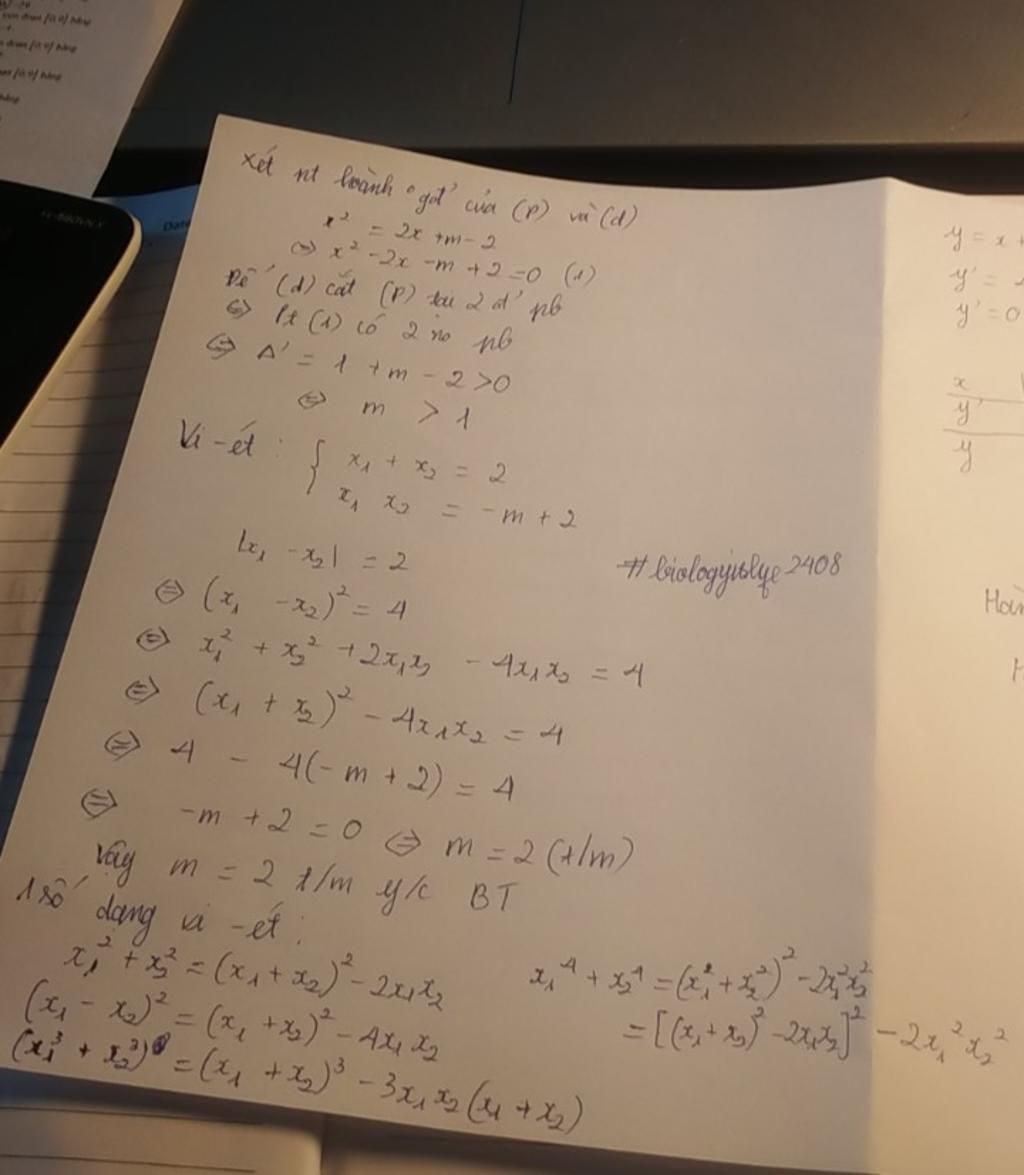 xét pt hoành độ gđ' của (P) và (d)
x² = 2x + m - 2
⇔ x² - 2x - m + 2 = 0 (1)
Để (d) cắt (P) tại 2 đ' pb
⇔ Pt (1) có 2 no pb
⇔ Δ' = 1 + m - 2 > 0
⇔ m > 1
Vi-ét : { x₁ + x₂ = 2
x₁ x₂ = -m + 2
|x₁ - x₂| = 2
#biologyislife2408
⇔ (x₁ - x₂)² = 4
⇔ x₁² + x₂² + 2x₁x₂ - 4x₁x₂ = 4
⇔ (x₁ + x₂)² - 4x₁x₂ = 4
⇔ 4 - 4(-m + 2) = 4
⇔ -m + 2 = 0 ⇔ m = 2 (t/m)
Vậy m = 2 t/m y/c BT
1 số dạng vi-ét :
x₁² + x₂² = (x₁ + x₂)² - 2x₁x₂
(x₁ - x₂)² = (x₁ + x₂)² - 4x₁x₂
(x₁³ + x₂³) = (x₁ + x₂)³ - 3x₁x₂(x₁ + x₂)
x₁⁴ + x₂⁴ = (x₁² + x₂²)² - 2x₁²x₂²
= [(x₁ + x₂)² - 2x₁x₂]² - 2x₁²x₂²
y = x +
y' =
y' = 0
x
y'
y
Date
đoạn [0;9] bằng
đoạn [0;9] bằng
[0;9] bằng
bằng